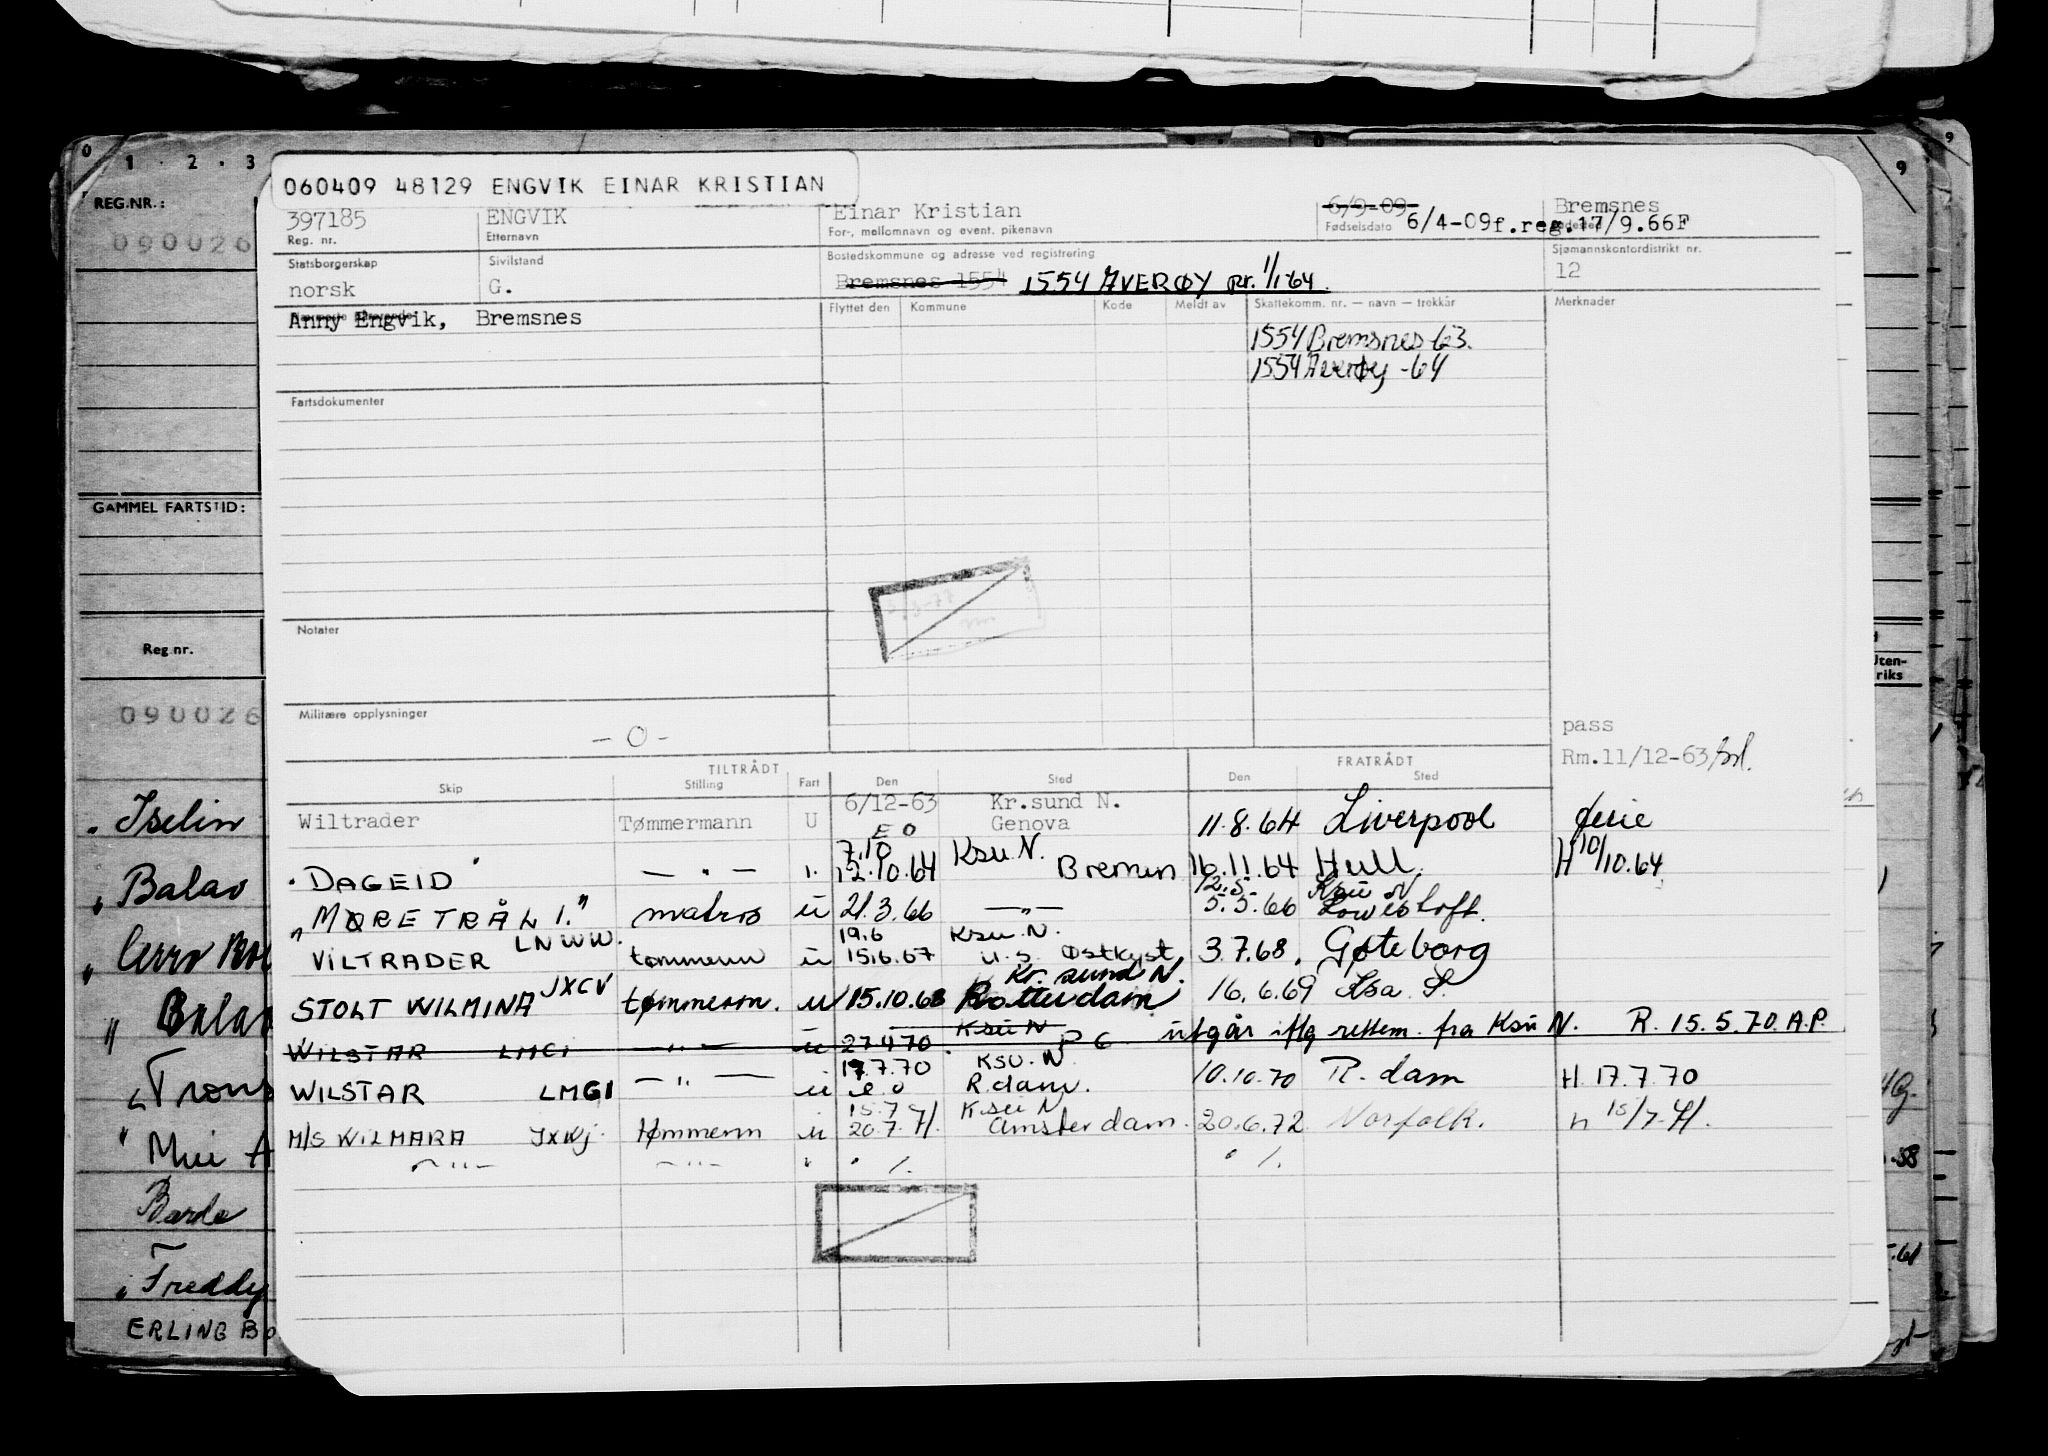 0 1 · 2 · 3
9
9
REG.NR.:
090026
GAMMEL FARTSTID:
Reg.nr.
090026
Uten-
riks
Iselin
Balao
Balao
Mui A
Bardo
Freddy
ERLING B
.58
.61
060409 48129 ENGVIK EINAR KRISTIAN
397185 ENGVIK Einar Kristian 6/9-09 6/4-09f.reg.17/9.66F Bremsnes
Reg. nr. Etternavn For-, mellomnavn og event. pikenavn Fødselsdato
Statsborgerskap Sivilstand Bostedskommune og adresse ved registrering Sjømannskontordistrikt nr.
norsk G. Bremsnes 1554 1554 AVERØY Rr. 1/1 64. 12
Anny Engvik, Bremsnes
Flyttet den Kommune Kode Meldt av Skattekomm. nr. — navn — trekkår Merknader
1554 Bremsnes-63.
1554 Averøy -64
Fartsdokumenter
Notater
Militære opplysninger
- O -
pass
Rm.11/12-63
TILTRÅDT FRATRÅDT
Skip Stilling Fart Den Sted Den Sted
6/12-63 Kr.sund N.
Wiltrader Tømmermann U E O Genova 11.8.64 Liverpool ferie
7.10 Ksu.N.
"DAGEID" — " — 12.10.64 Bremen 16.11.64 Hull. H 10/10.64
12.5. Ksu N
"MØRETRÅL 1." matros u 21.3.66 —"— 5.5.66 Lowestoft.
LNWW. 19.6 Ksu.N.
VILTRADER tømmerm u 15.6.67 U.S. Østkyst 3.7.68. Gøteborg
Kr.sund N.
STOLT WILMINA JXCV tømmerm. u 15.10.68 Rotterdam 16.6.69 Ksa. S.
WILSTAR LMGI —"— u 27470 Ksu N P6 utgår iflg rettem. fra Ksu N. R. 15.5.70. A.P.
17.7.70 KSU.N
WILSTAR LMGI —"— u e.o R.dam. 10.10.70 R.dam H. 17.7.70
15.7.71 Ksu N
M/S WILMARA JXWJ. tømmerm u 20.7.71. Amsterdam. 20.6.72 Norfolk. h 15/7.71.
—"— —"— ' ' /. ' /.